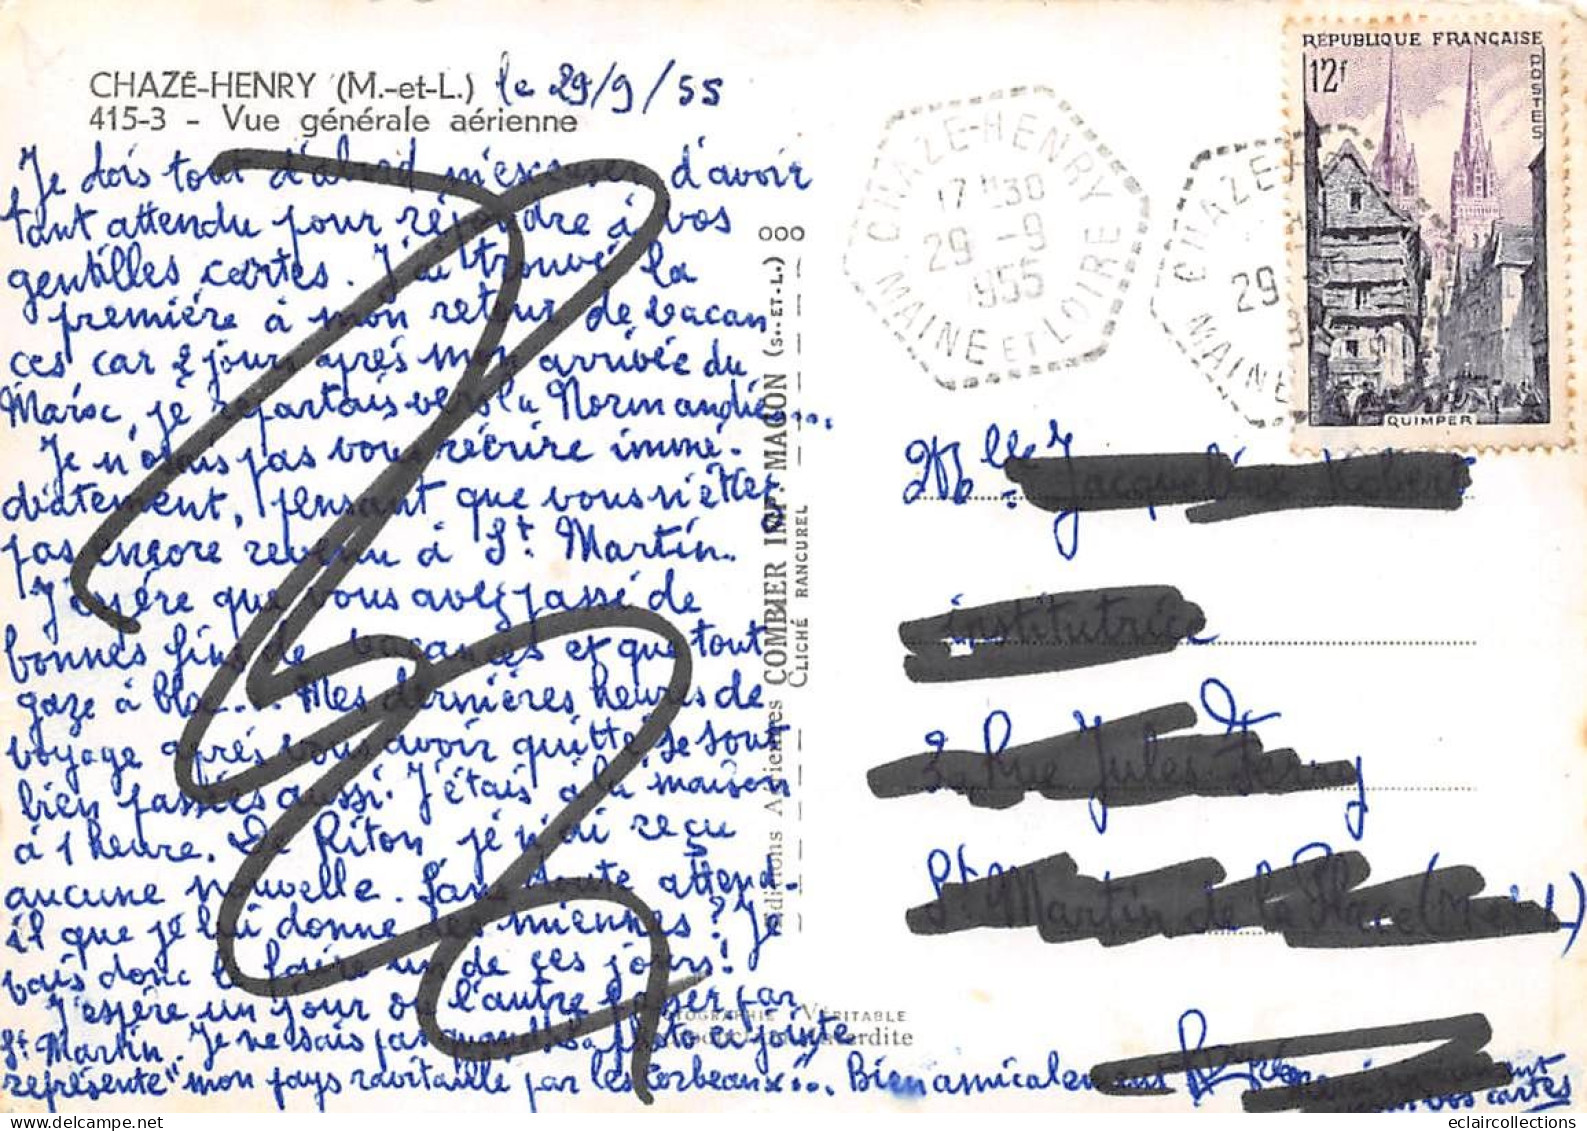 CHAZÉ-HENRY (M.-et-L.) le 29/9/55
415-3 - Vue générale aérienne
Je dois tout d'abord m'excuser d'avoir
tant attendu pour répondre à vos
gentilles cartes. J'ai trouvé la
première à mon retour de vacan
ces car 2 jours après mon arrivée du
Maroc, je repartais vers la Normandie...
Je n'osais pas vous récrire immé-
diatement, pensant que vous n'étiez
pas encore revenu à St. Martin.
J'espère que vous avez passé de
bonnes fins de vacances et que tout
gaze à bloc... Mes dernières heures de
voyage après vous avoir quitté se sont
bien passées aussi. J'étais à la maison
à 1 heure. De Riton je n'ai reçu
aucune nouvelle. Sans doute attend-
il que je lui donne les miennes ? Je
vais donc le faire un de ces jours!
J'espère un jour ou l'autre passer par
St. Martin. Je ne sais pas quand. La photo ci jointe
représente "mon pays ravitaillé par les Corbeaux"... Bien amicalement
vos cartes
OOO
Editions Aériennes COMBIER IMP. MACON (S.-ET-L.)
CLICHÉ RANCUREL
PHOTOGRAPHIE VÉRITABLE
Interdite
CHAZE-HENRY
17H30
29 -9
1955
MAINE ET LOIRE
CHAZE-H
29
MAINE
RÉPUBLIQUE FRANÇAISE
12f
POSTES
QUIMPER
Melle Jacqueline Robert
institutrice
3, Rue Jules Ferry
St Martin de la Place (M et L)
eclaircollections